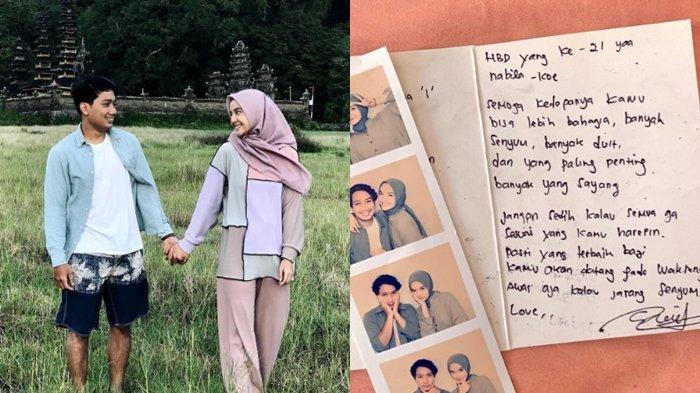 HBD yang ke-21 yaa
nabila-koe
semoga kedepanya kamu
bisa lebih bahagia, banyak
senyum, banyak duit.
dan yang paling penting
banyak yang sayang
jangan sedih kalau semua ga
sesuai yang kamu harepin.
pasti yang terbaik bagi
kamu akan datang pada
Awas aja kalau jarang senyum
Love,